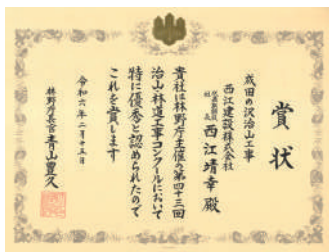 賞状
成田の沢治山工事
西江建設株式会社
代表取締役
社長
西江靖幸殿
貴社は林野庁主催の第四十三回
治山・林道工事コンクールにおいて
特に優秀と認められたので
これを賞します
令和六年二月十五日
林野庁長官青山豊久